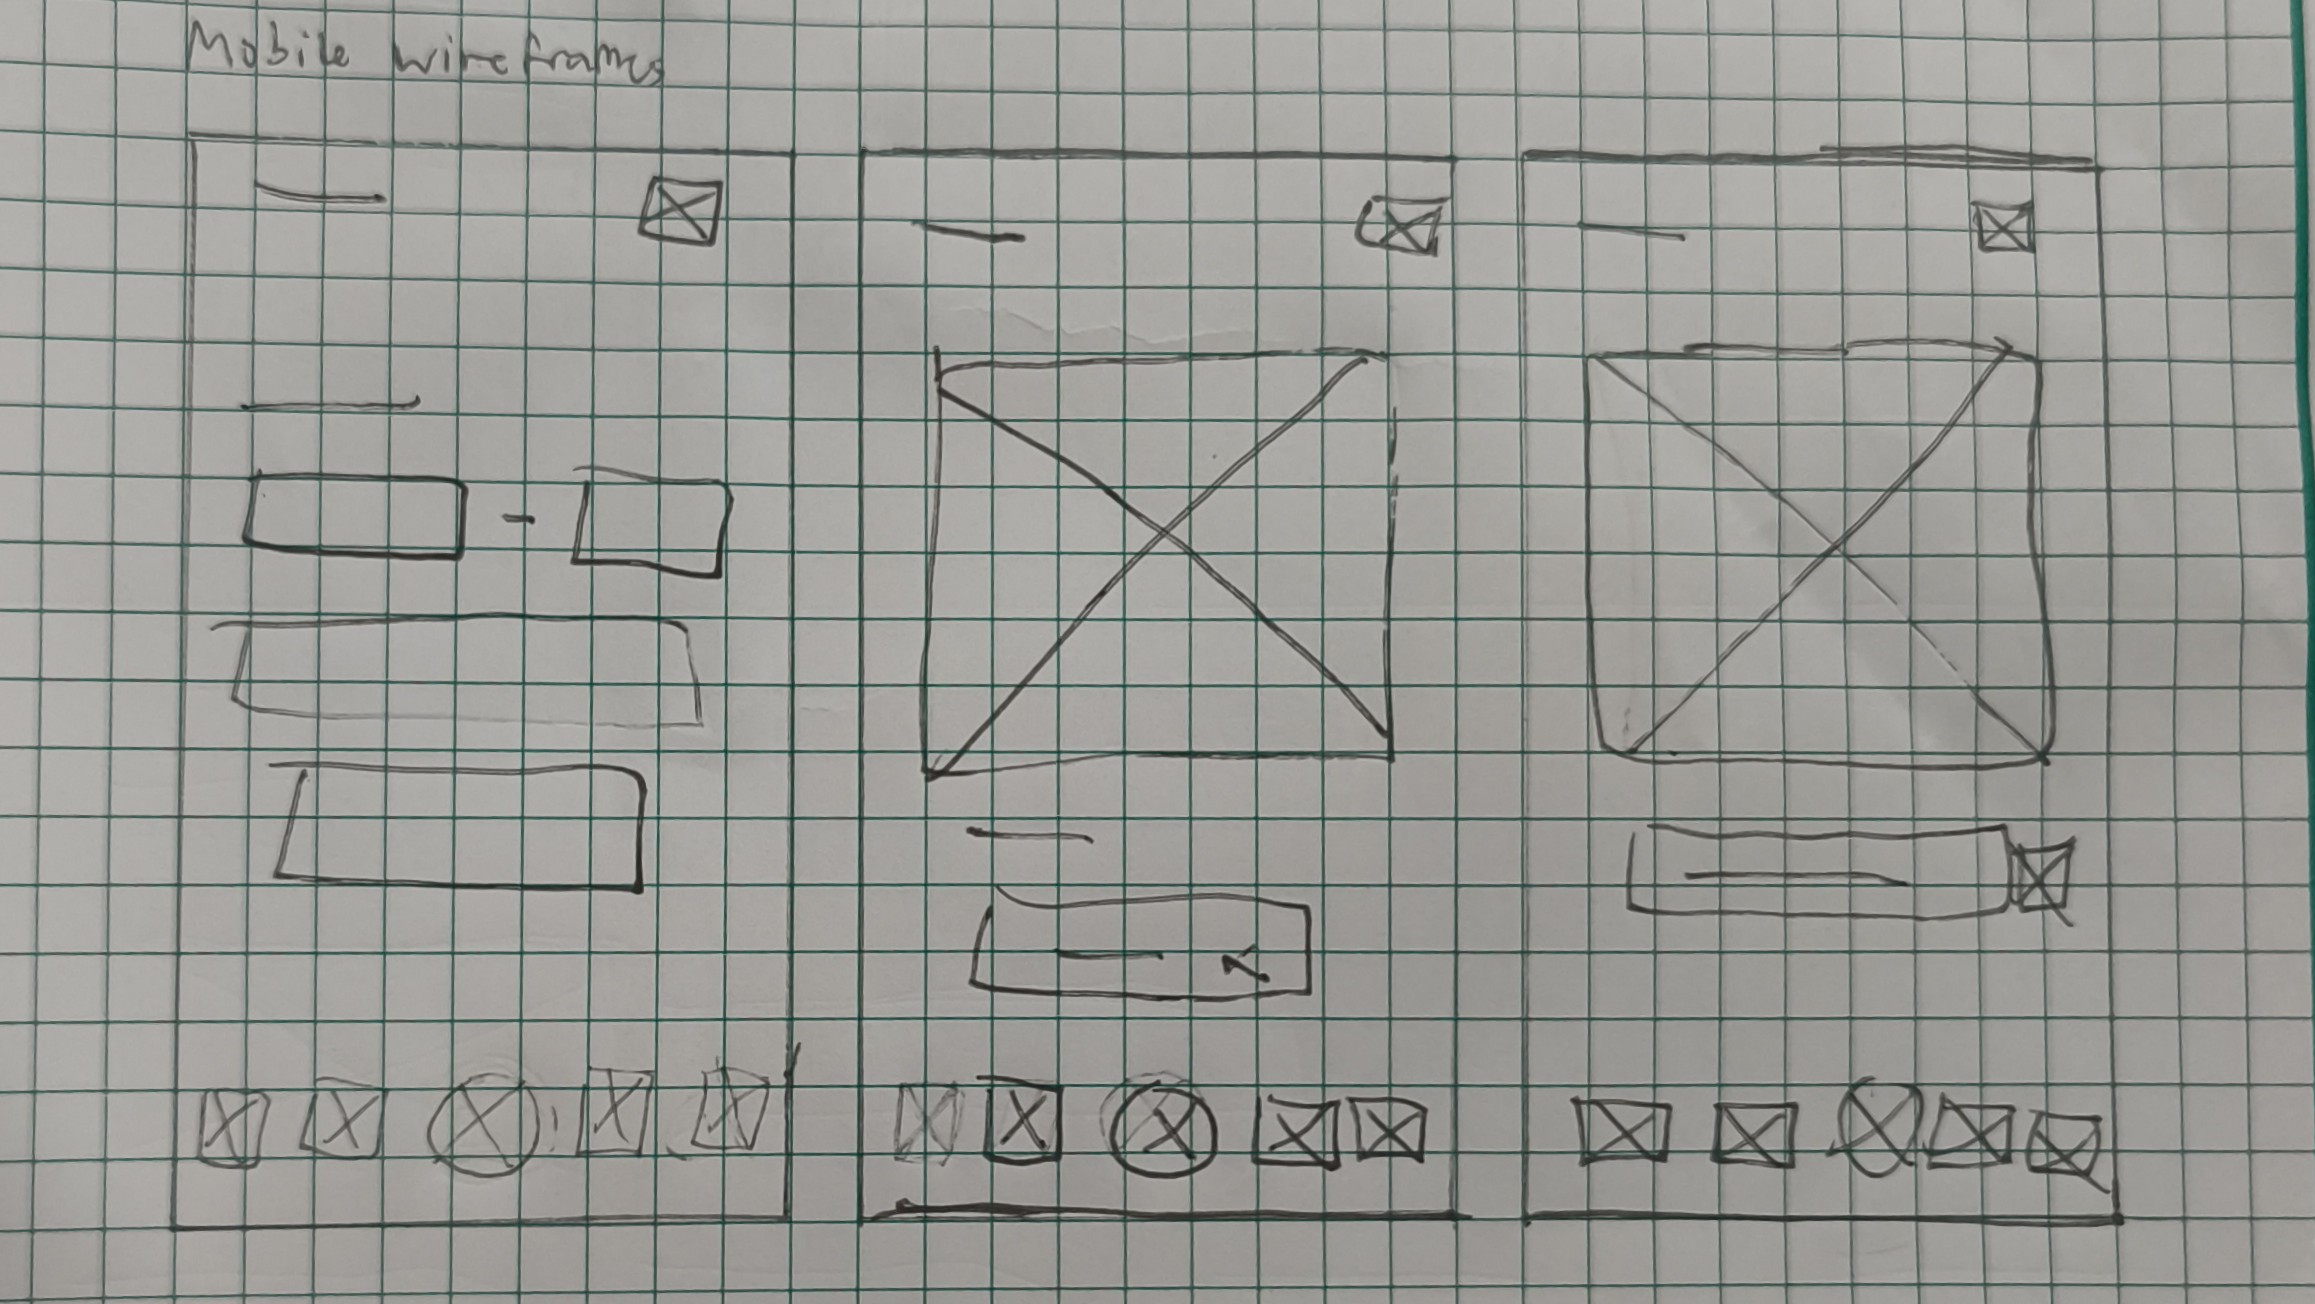 Mobile wireframes